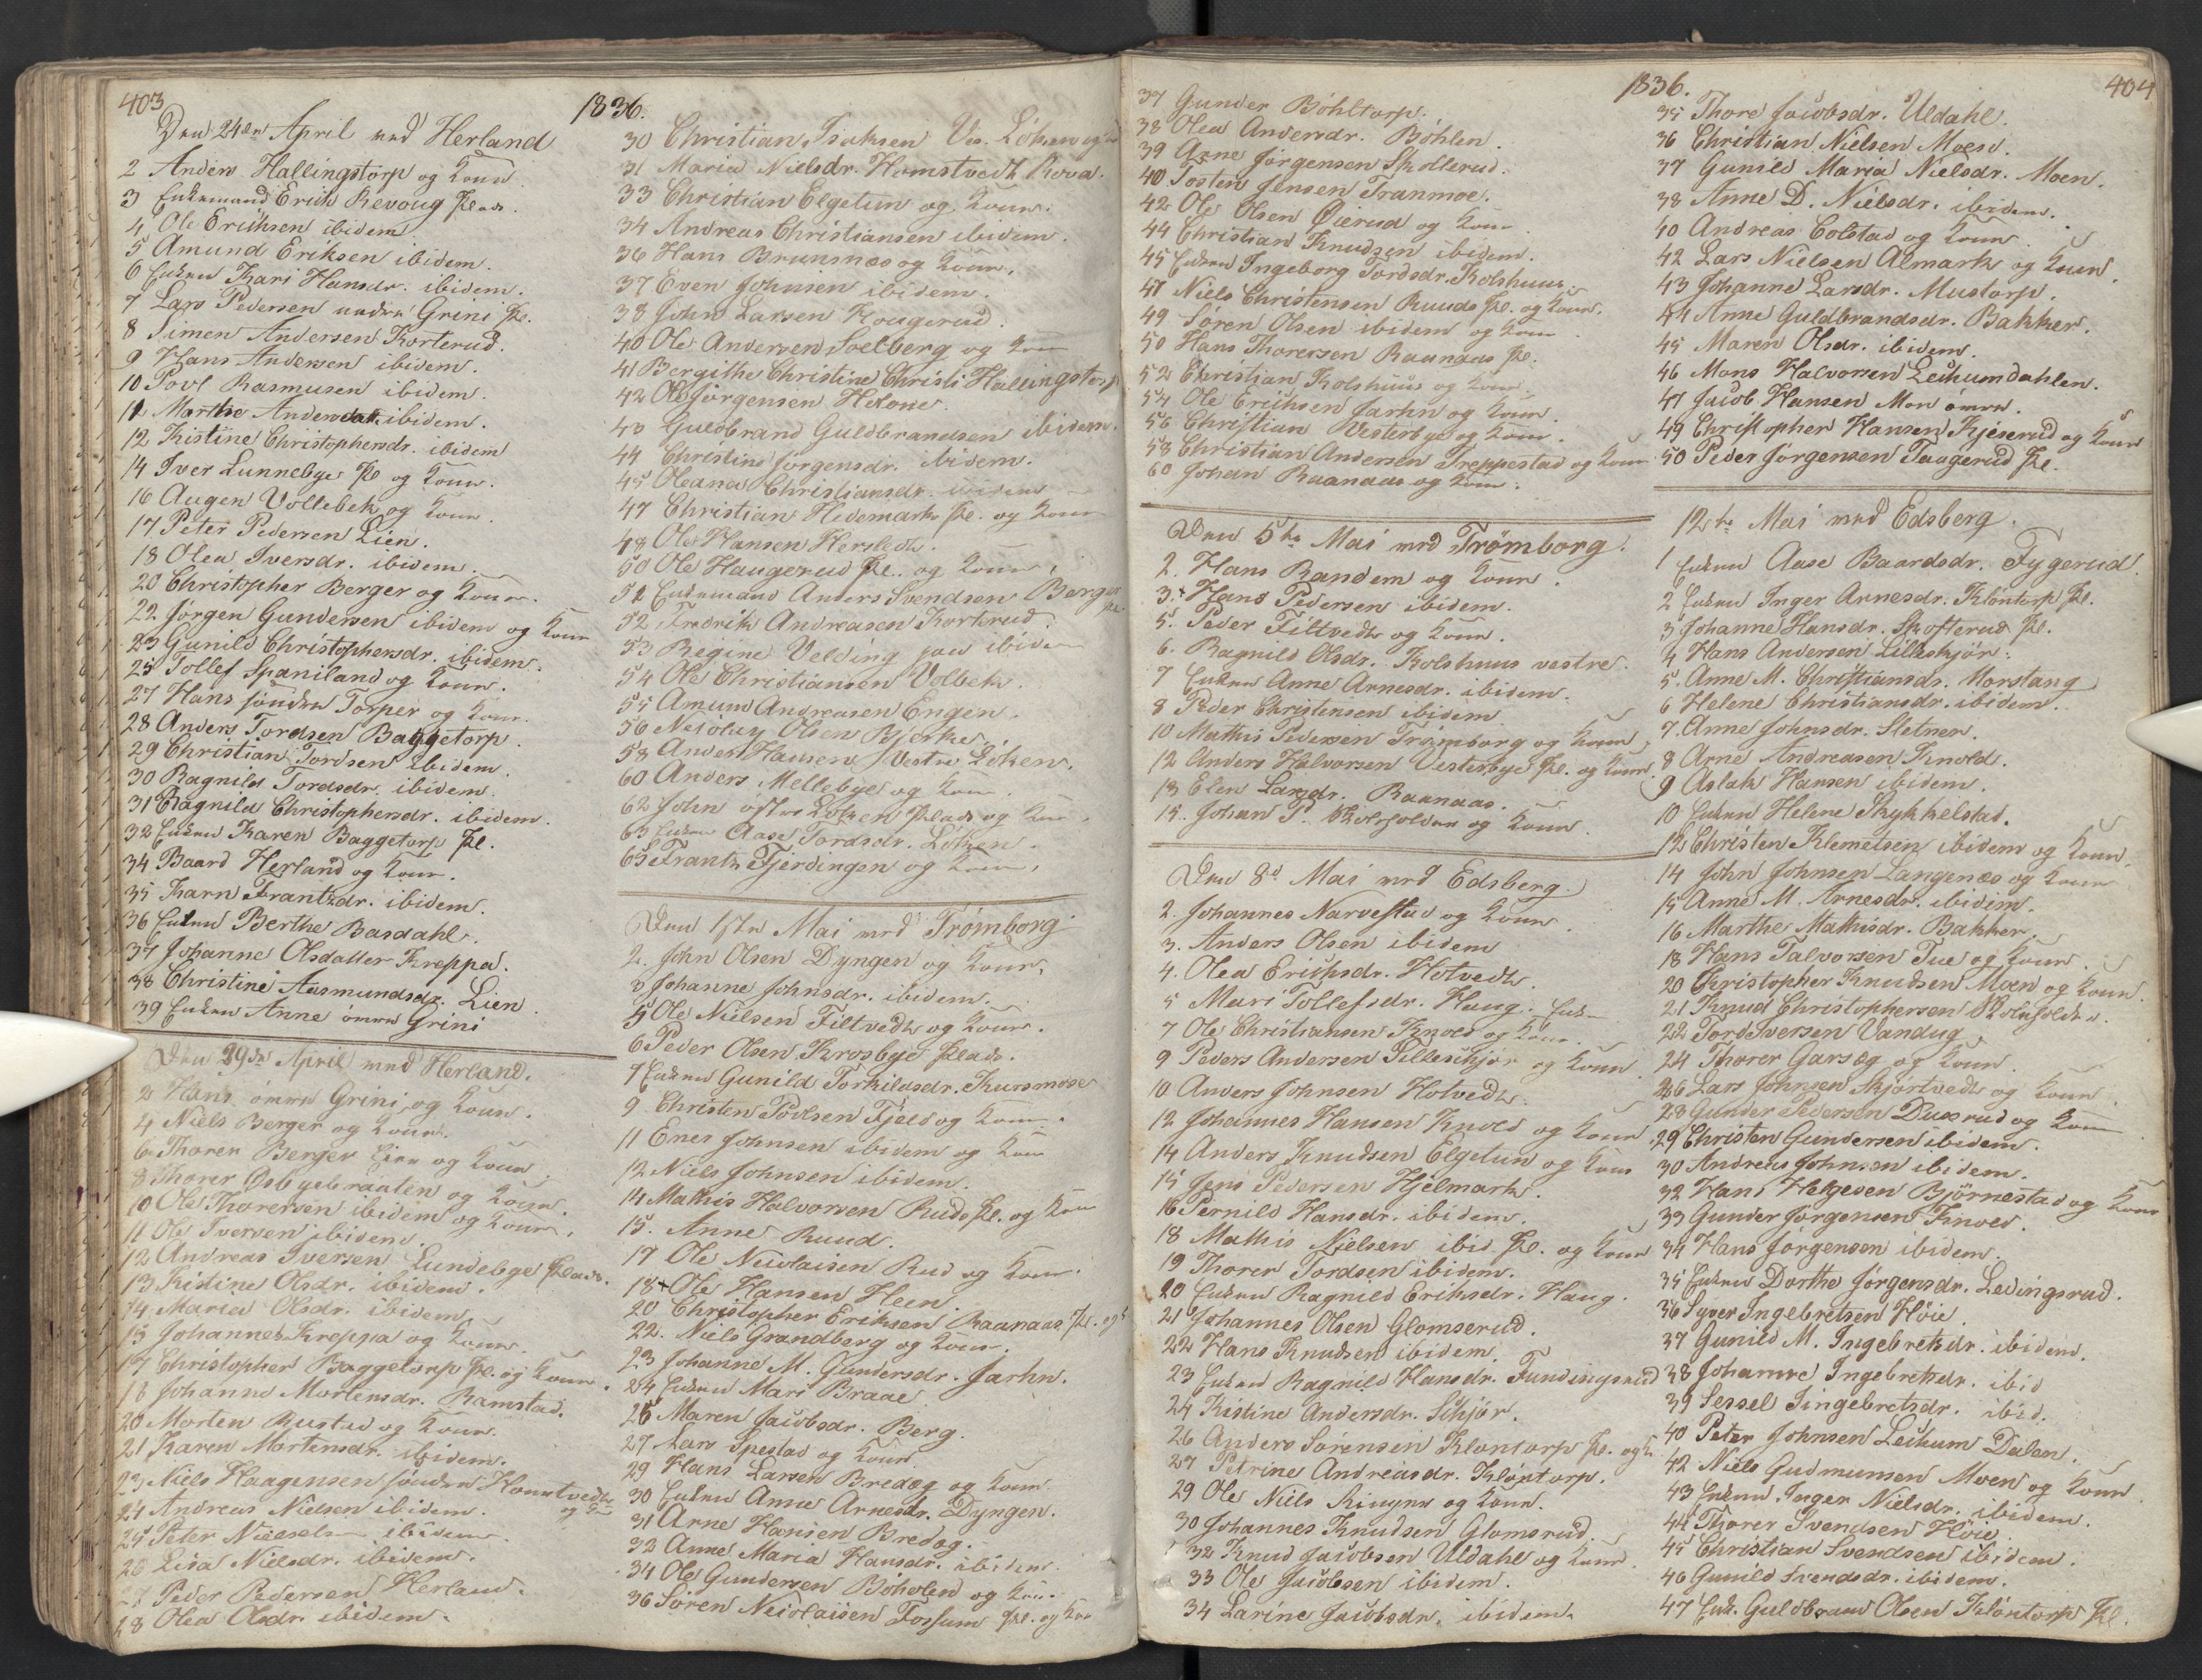 403
1836.
Den 24de April ved Herland
2 Anders Hallingstorp og Kone
3 Enkemand Erich Revoug Plads.
4 Ole Erichsen ibidem
5 Amund Eriksen ibidem.
6 Enken Kari Hansdr. ibidem.
7 Lars Pedersen nedre Grini Pl.
8 Simen Andersen Korterud.
9 Hans Andersen ibidem.
10 Povl Rasmusen ibidem.
11 Marthe Andersdatt. ibidem.
12 Kistine Christophersdr. ibidem
14 Iver Lunnebye Pl og Kone.
16 Augen Vollebek og Kone.
17 Peter Pedersen Lien.
18 Olea Iversdr. ibidem.
20 Christopher Berger og Kone.
22 Jørgen Gundersen ibidem og Kone
23 Gunild Christophersdr. ibidem.
25 Tollef Spaniland og Kone.
27 Hans søndre Torper og Kone.
28 Anders Tordsen Baggetorp.
29 Christian Tordsen ibidem.
30 Ragnild Tordsdr. ibidem.
31 Ragnild Christophersdr. ibidem.
32 Enken Karen Baggetorp Pl.
34 Baard Herland og Kone.
35 Karn Frantzdr. ibidem.
36 Enken Berthe Basdahl.
37 Johanne Olsdatter Kreppa.
38 Christine Aasmundsdr. Lien
39 Enken Anne øvre Grini
Den 29de April ved Herland.
2 Hans øvre Grini og Kone.
4 Niels Berger og Kone.
6 Thorer Berger Eier og Kone
8 Thorer Osbyebraaten og Kone.
10 Ole Thorersen ibidem og Kone.
11 Ole Iversen ibidem.
12 Andreas Iversen Lundebye Plads.
13 Kistine Olsdr. ibidem.
14 Maria Olsdr. ibidem
15 Johannes Kreppa og Kone.
17 Christopher Baggetorp Pl. og Kone.
18 Johanne Mortensdr. Ramstad.
20 Morten Rustad og Kone.
21 Karen Mortensdr. ibidem.
23 Niels Haagensen søndre Homstvedt og Kone
24 Andreas Nielsen ibidem.
25 Peter Nielsen ibidem
26 Lisa Nielsdr. ibidem.
27 Peder Pedersen Herland.
28 Olea Olsdr. ibidem.
30 Christian Isaksen Ves. Løken og
31 Maria Nielsdr. Homstvedt Rova.
33 Christian Elgetun og Kone.
34 Andreas Christiansen ibidem.
36 Hans Brunsnæs og Kone.
37 Even Johnsen ibidem.
38 John Larsen Kougerud.
40 Ole Andersen Soelberg og Kone
41 Bergithe Christine Christi Hallingstorp
42 Ole Jørgensen Helone.
43 Guldbrand Guldbrandsen ibidem.
44 Christine Jørgensdr. ibidem.
45 Oleana Christiansdr. ibidem
47 Christian Hedemark Pl. og Kone
48 Ole Hansen Herstedt.
50 Ole Haugerud Pl. og Kone.
51 Enkemand Anders Svendsen Berger Pl.
52 Fredrik Andreasen Korterud.
53 Regine Velding ibidem
54 Ole Christiansen Volbek.
55 Amund Andreasen Engen.
56 Nicolay Olsen Bjerke.
58 Anders Hansen Vestre Løken.
60 Anders Mellebye og Kone.
62 John østre Løken Plads og Kone.
63 Enken Aase Tordsdr. Løken.
65 Frantz Fjerdingen og Kone.
Den 1ste Mai ved Trømborg
2. John Olsen Dyngen og Kone.
3 Johanne Johnsdr. ibidem.
5 Ole Nielsen Filtvedt og Kone.
6 Peder Olsen Krosbye Plads.
7 Enken Gunild Torkildsdr. Kursmose
9 Christen Povlsen Fjeld og Kone.
11 Ener Johnsen ibidem og Kone
12 Niels Johnsen ibidem.
14 Mathis Halvorsen Ruds Pl. og Kone
15. Anne Ruud.
17 Ole Nicolaisen Rud og Kone.
18 Ole Hansen Heen.
20 Christopher Eriksen Raanaas Pl. og K
22. Niels Grandberg og Kone.
23 Johanne M. Gundersdr. Jarhn.
24 Enken Mari Braae
25 Maren Jacobsdr. Berg.
27 Lars Spestad og Kone.
29 Hans Larsen Bredeg og Kone.
30 Enken Anne Arnesdr. Dyngen.
31 Arne Hansen Bredeg.
32 Anne Maria Hansdr. ibidem.
34 Ole Gundersen Bøholen og Kone.
36 Søren Nicolaisen Fossum Pl. og Kone
1836.
404
37 Gunder Bøhltorp.
38 Olea Andersdr. Bøhlen.
39 Arne Jørgensen Skollerud.
40 Tosten Jensen Tranmoe.
42 Ole Olsen Øierud og Kone
44 Christian Knudsen ibidem.
45 Enken Ingeborg Tordsdr. Kolshuus.
47 Niels Christensen Ruuds Pl. og Kone.
49 Søren Olsen ibidem og Kone
50 Hans Thorersen Raanaas Pl.
52 Christian Kolshuus og Kone.
54 Ole Erichsen Jarhn og Kone.
56 Christian Vesterbye og Kone.
58 Christian Andersen Treppestad og Kone
60 Johan Raanaas og Kone.
Den 5te Mai ved Trømborg.
2. Hans Randem og Kone.
3. Hans Pedersen ibidem.
5. Peder Filtvedt og Kone.
6. Ragnild Olsdr. Kolshuus vestre.
7 Enken Anne Arnesdr. ibidem.
8 Peder Christensen ibidem.
10 Mathis Pedersen Tromborg og Kone
12 Anders Halvorsen Vesterbye Pl. og Kone.
13 Elen Larsdr. Raanaas.
15. Johan P. Skolsfolden og Kone.
Den 8de Mai ved Edsberg.
2. Johannes Narvestad og Kone
3. Anders Olsen ibidem
4. Olea Erichsdr. Hotvedt.
5 Mari Tollefsdr. Haug. Enke
7 Ole Christiansen Knold og Kone.
9 Peders Andersen Lilleskjør og Kone
10 Anders Johnsen Hotvedt.
12 Johannes Hansen Knold og Kone
14 Anders Knudsen Elgetun og Kone
15 Jens Pedersen Hjelmark.
16 Pernild Hansdr. ibidem.
18 Mathis Nielsen ibid. Pl. og Kone
19 Thorer Tordsen ibidem.
20 Enken Ragnild Eriksdr. Haug.
21 Johannes Olsen Glomserud.
22 Hans Knudsen ibidem.
23 Enken Ragnild Hansdr. Fundingsrud
24 Kistine Andersdr. Schjør.
26 Anders Sørensen Kløntorp Pl. og K.
27 Petrine Andreasdr. Kløntorp.
29 Ole Niels og Kone.
30 Johannes Knudsen Glomsrud.
32 Knud Jacobsen Uldahl og Kone.
33 Ole Jacobsen ibidem.
34 Larine Jacobsdr. ibidem.
35 Thore Jacobsdr. Uldahl.
36 Christian Nielsen Moen.
37 Gunild Maria Nielsdr. Moen.
38 Anne D. Nielsdr. ibidem.
40 Andreas Colstad og Kone.
42 Lars Nielsen Almark og Kone.
43 Johanne Larsdr. Mustorp.
44 Anne Guldbrandsdr. Bakker.
45 Maren Olsdr. ibidem.
46 Mons Halvorsen Leikumdahlen.
47 Jacob Hansen Mon øvre.
49 Christopher Hansen Kjeserud og Kone
50 Peder Jørgensen Taugerud Pl.
12te Mai ved Edsberg.
1 Enken Aase Baardsdr. Fygerud.
2 Enken Inger Arnesdr. Kløntorp Pl.
3 Johanne Hansdr. Skofterud Pl.
4 Hans Andersen Lilleskjør.
5. Anne M. Christiansdr. Morstang
6 Helene Christiansdr. ibidem.
7. Anne Johnsdr. Sletner.
8 Arne Andreasen Knold.
9 Aslak Hansen ibidem.
10 Enken Helene Skykkelstad.
12 Christen Klemetsen ibidem og Kone.
14 John Johnsen Langenæs og Kone
15 Anne M. Arnesdr. ibidem.
16 Marthe Mathisdr. Bakker.
18 Hans Talvorsen Tue og Kone
20 Christopher Knudsen Moen og Kone.
21 Knud Christophersen Skolsfolden.
22 Tord Iversen Vandug
24 Thorer Garseg og Kone.
26 Lars Johnsen Skjørtvedt og Kone.
28 Gunder Pedersen Dusrud og Kone
29 Christen Gundersen ibidem.
30 Andreas Johnsen ibidem.
32 Hans Helgesen Bjørnestad og Kone
33 Gunder Jørgensen Knold.
34 Hans Jørgensen ibidem.
35 Enken Dorthe Jørgensdr. Ledingsrud.
36 Syver Ingebretsen Høie.
37 Gunild M. Ingebretsdr. ibidem.
38 Johanne Ingebretsdr. ibid
39 Sessel Ingebretsdr. ibid.
40 Peter Johnsen Leikum Dalen.
42 Niels Gudmunsen Moen og Kone
43 Enken Inger Nielsdr. ibidem.
44 Thorer Svendsen Høie
45 Christian Svendsen ibidem.
46 Gunild Svendsdr. ibidem.
47 Enk. Guldbrand Olsen Kløntorp Pl.